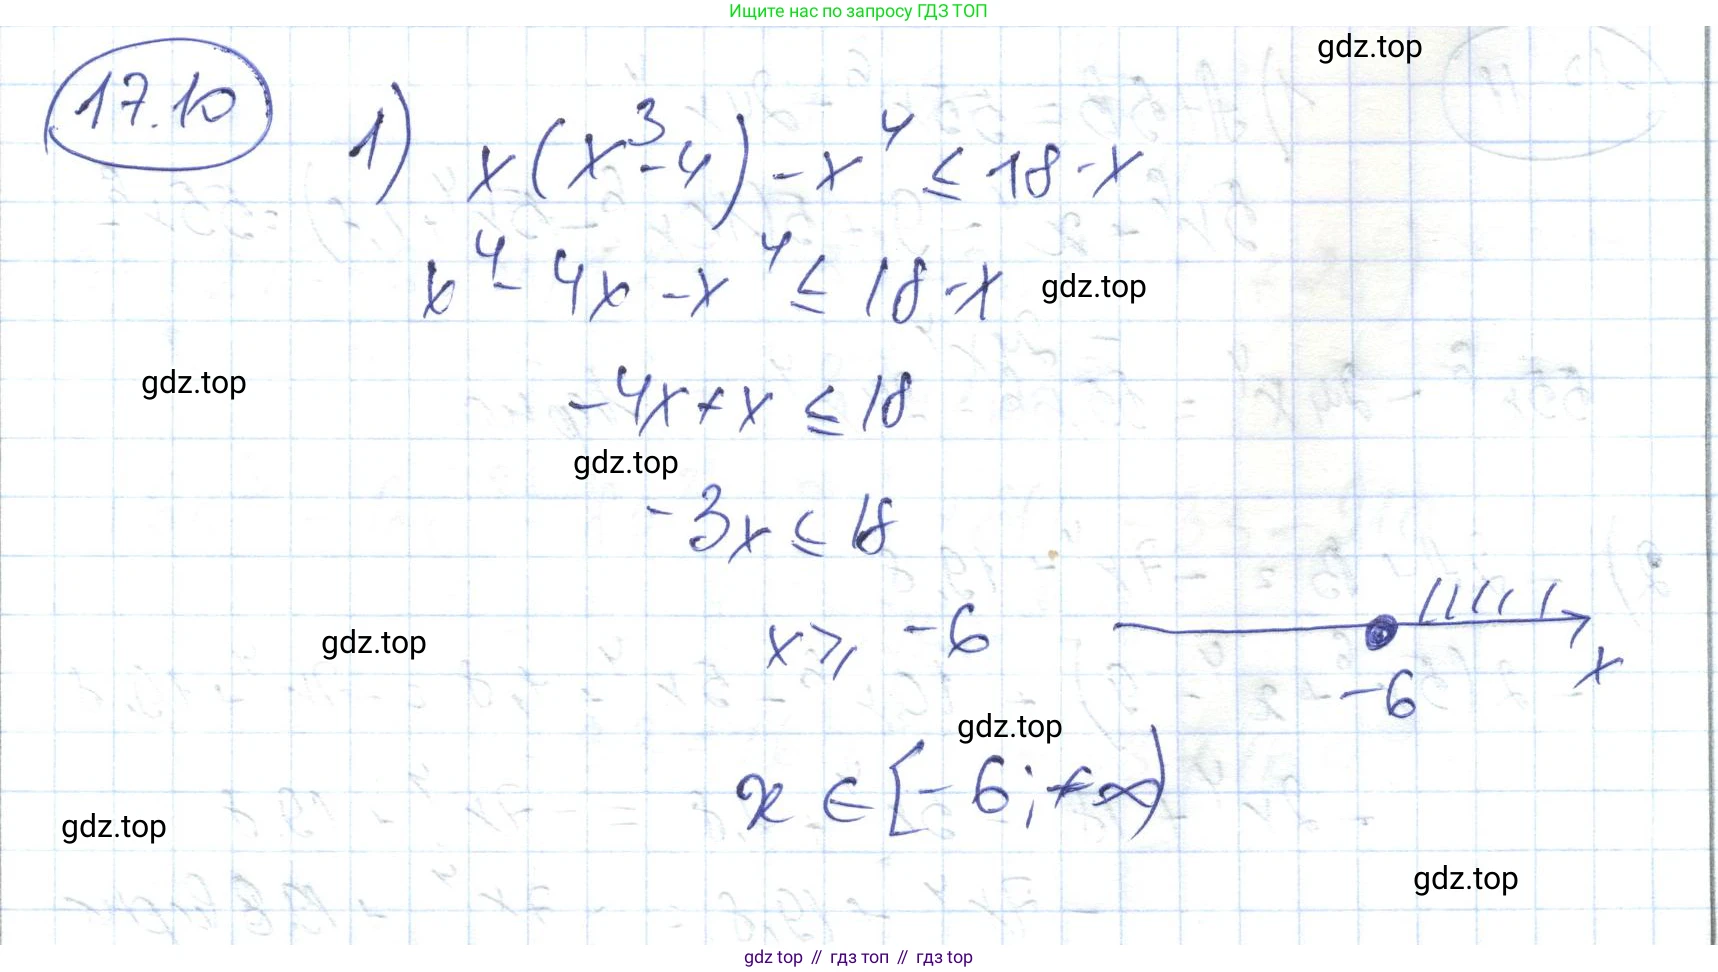 Ищите нас по запросу ГДЗ ТОП
gdz.top
17.10
1) x(x³-4)-x⁴ ≤ 18-x
x⁴-4x-x⁴ ≤ 18-x
gdz.top
gdz.top
-4x+x ≤ 18
gdz.top
-3x ≤ 18
x ≥ -6
gdz.top
-6 x
gdz.top
x ∈ [-6; +∞)
gdz.top
gdz.top
gdz top // гдз топ // гдз top